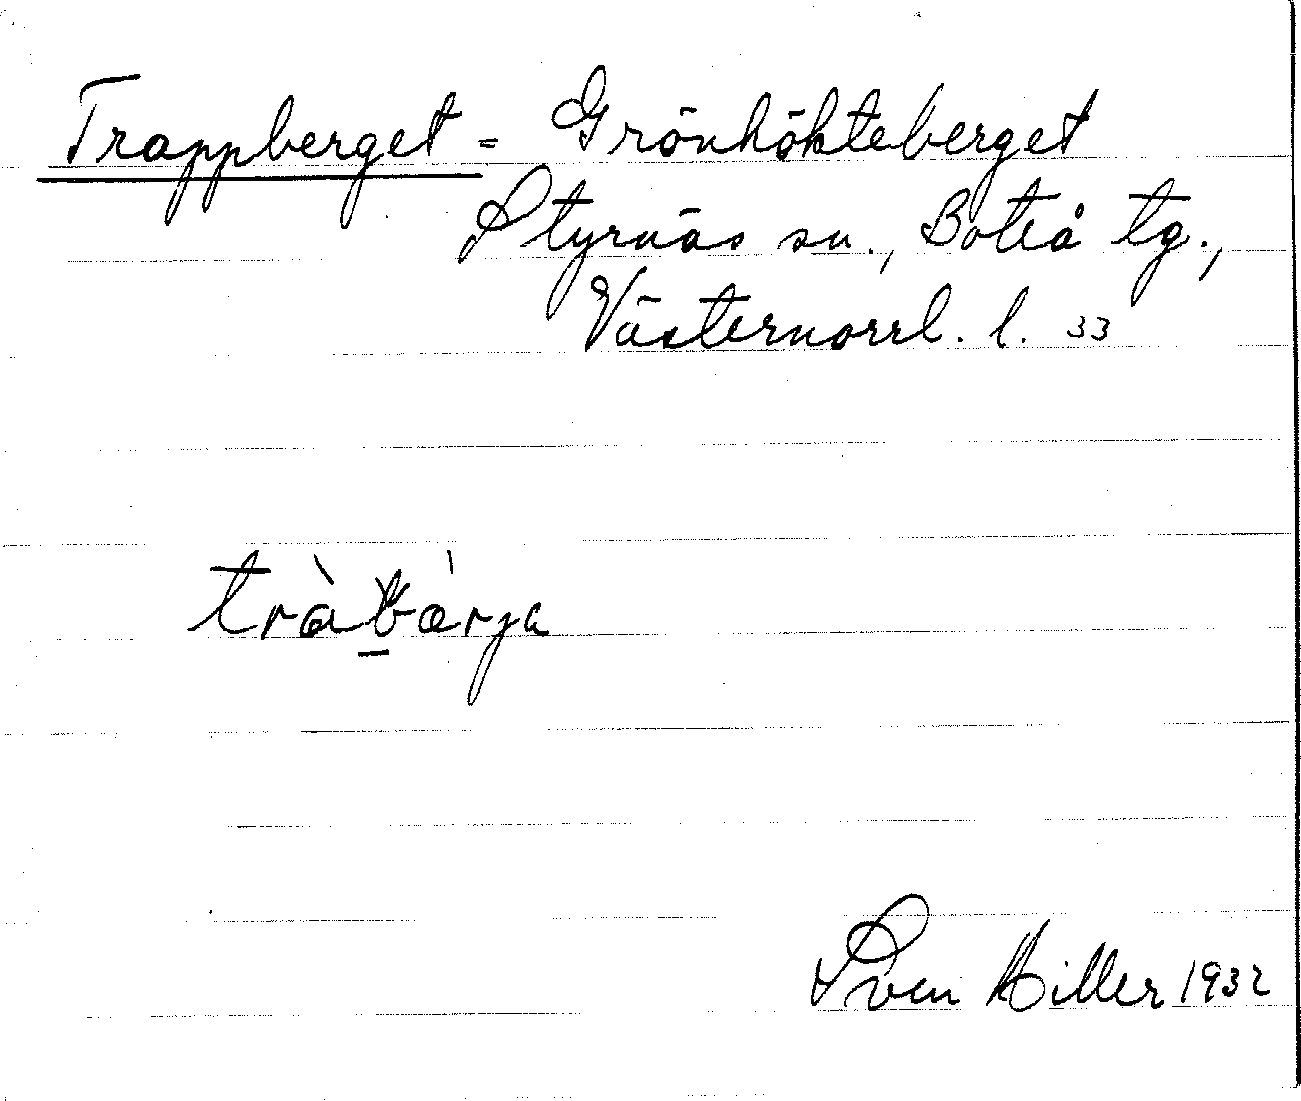 Trappberget = Grönhökteberget
Styrnäs sn., Boteå tg.,
Västernorrl. l. 33
Sven Hiller 1932